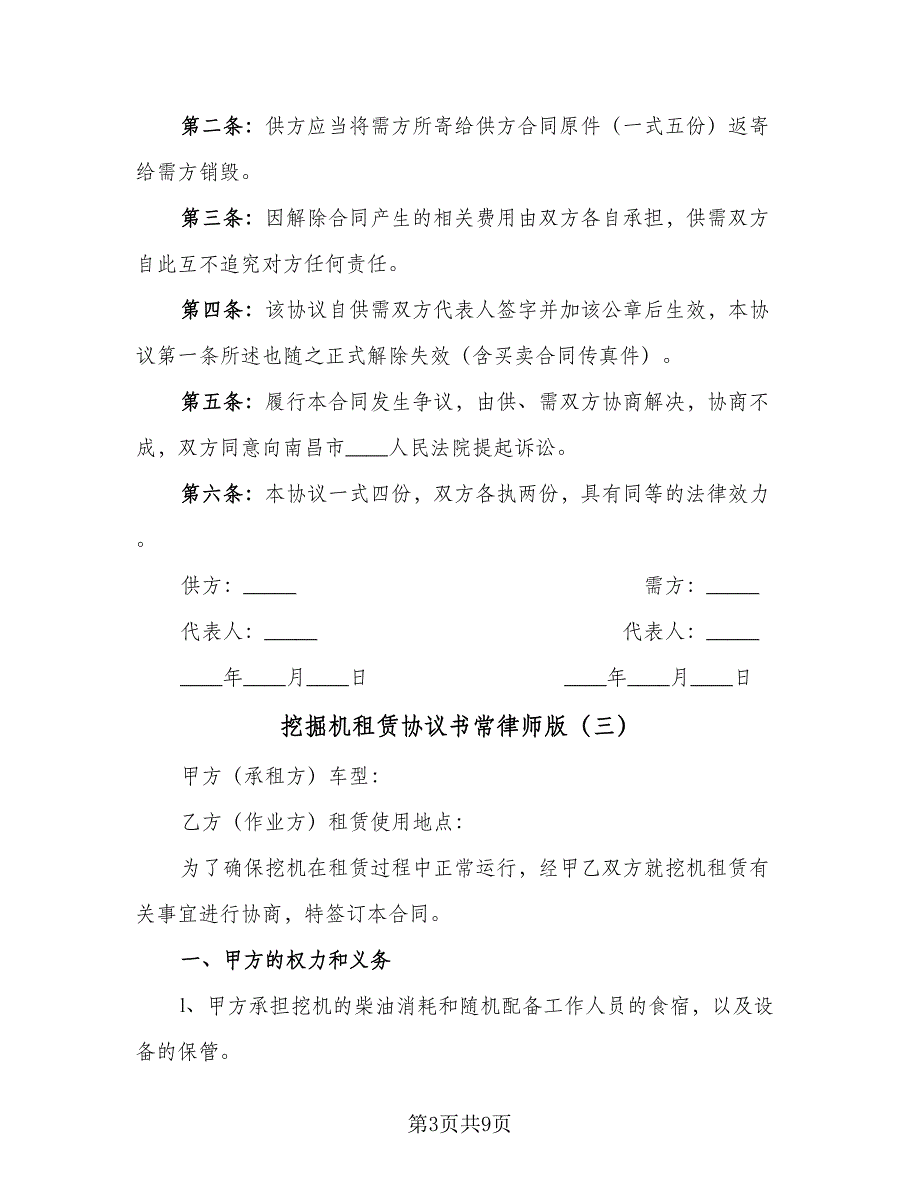 第二条：供方应当将需方所寄给供方合同原件（一式五份）返寄
给需方销毁。
第三条：因解除合同产生的相关费用由双方各自承担，供需双方
自此互不追究对方任何责任。
第四条：该协议自供需双方代表人签字并加该公章后生效，本协
议第一条所述也随之正式解除失效（含买卖合同传真件）。
第五条：履行本合同发生争议，由供、需双方协商解决，协商不
成，双方同意向南昌市____人民法院提起诉讼。
第六条：本协议一式四份，双方各执两份，具有同等的法律效力
。
供方：_____ 需方：_____
代表人：_____ 代表人：_____
____年____月____日 ____年____月____日
挖掘机租赁协议书常律师版（三）
甲方（承租方）车型：
乙方（作业方）租赁使用地点：
为了确保挖机在租赁过程中正常运行，经甲乙双方就挖机租赁有
关事宜进行协商，特签订本合同。
一、甲方的权力和义务
1、甲方承担挖机的柴油消耗和随机配备工作人员的食宿，以及设
备的保管。
第3页共9页